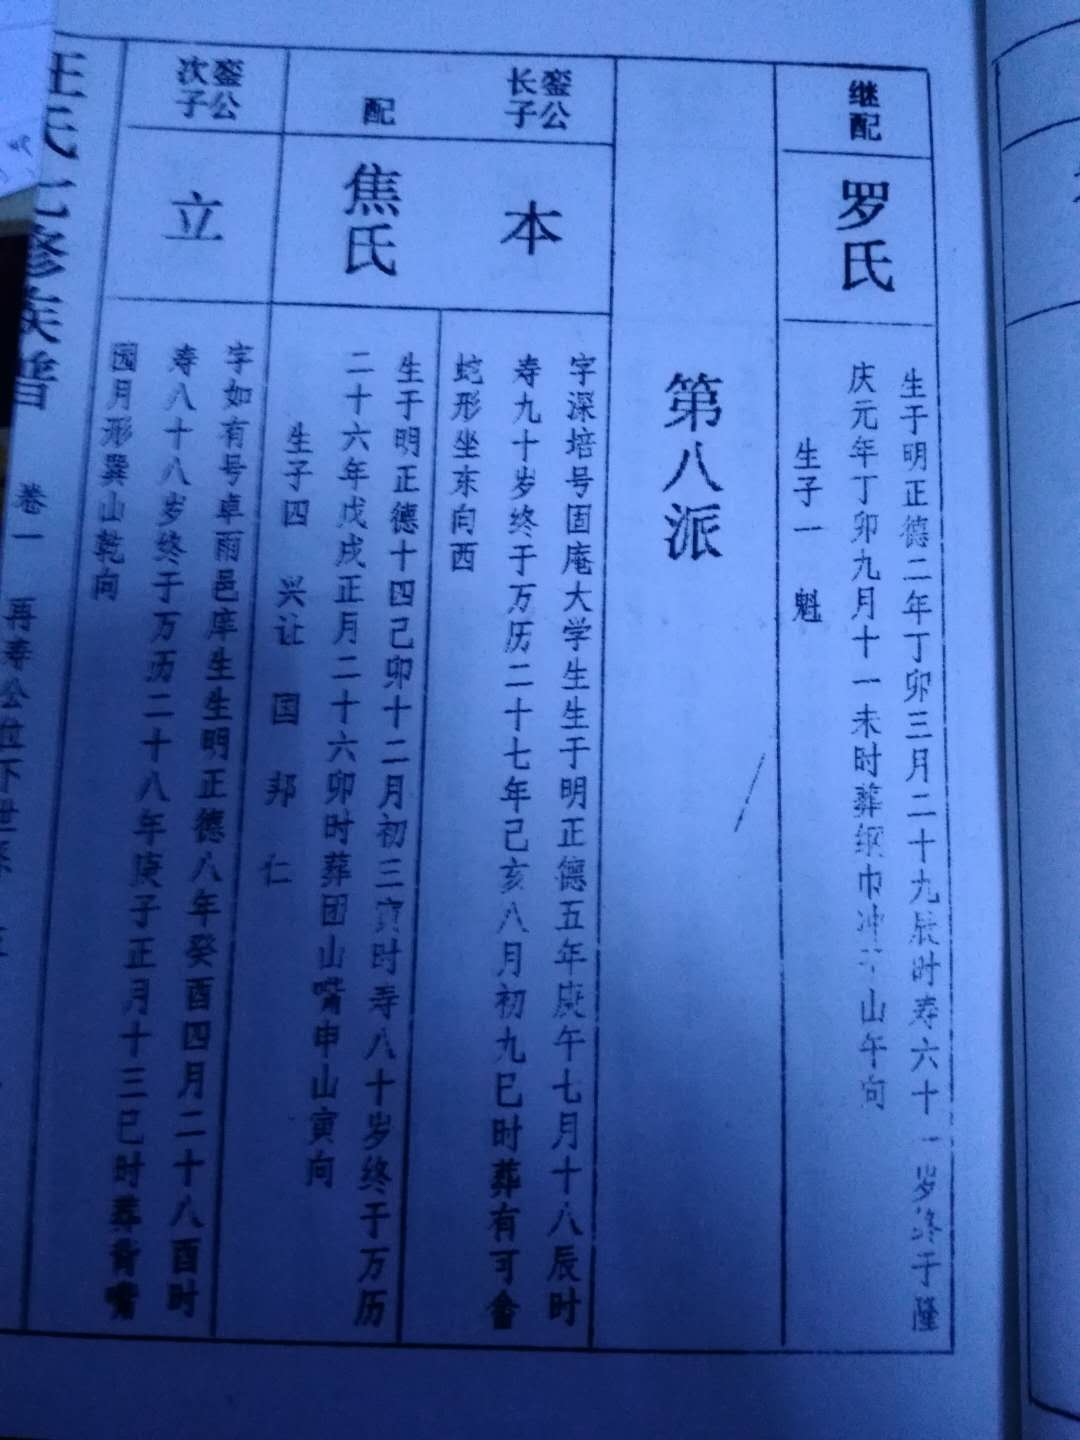 继配
罗氏
生于明正德二年丁卯三月二十九辰时寿六十一岁终于隆
庆元年丁卯九月十一未时葬纲巾冲 山午向
生子一 魁
第八派
銮公
长子
本
字深培号固庵大学生生于明正德五年庚午七月十八辰时
寿九十岁终于万历二十七年己亥八月初九巳时葬有可舍
蛇形坐东向西
配
焦氏
生于明正德十四己卯十二月初三寅时寿八十岁终于万历
二十六年戊戌正月二十六卯时葬团山嘴申山寅向
生子四 兴让 国 邦 仁
銮公
次子
立
字如有号卓雨邑庠生生明正德八年癸酉四月二十八酉时
寿八十八岁终于万历二十八年庚子正月十三巳时葬背嘴
园月形巽山乾向
汪氏七修族谱 卷一 再寿公位下世系